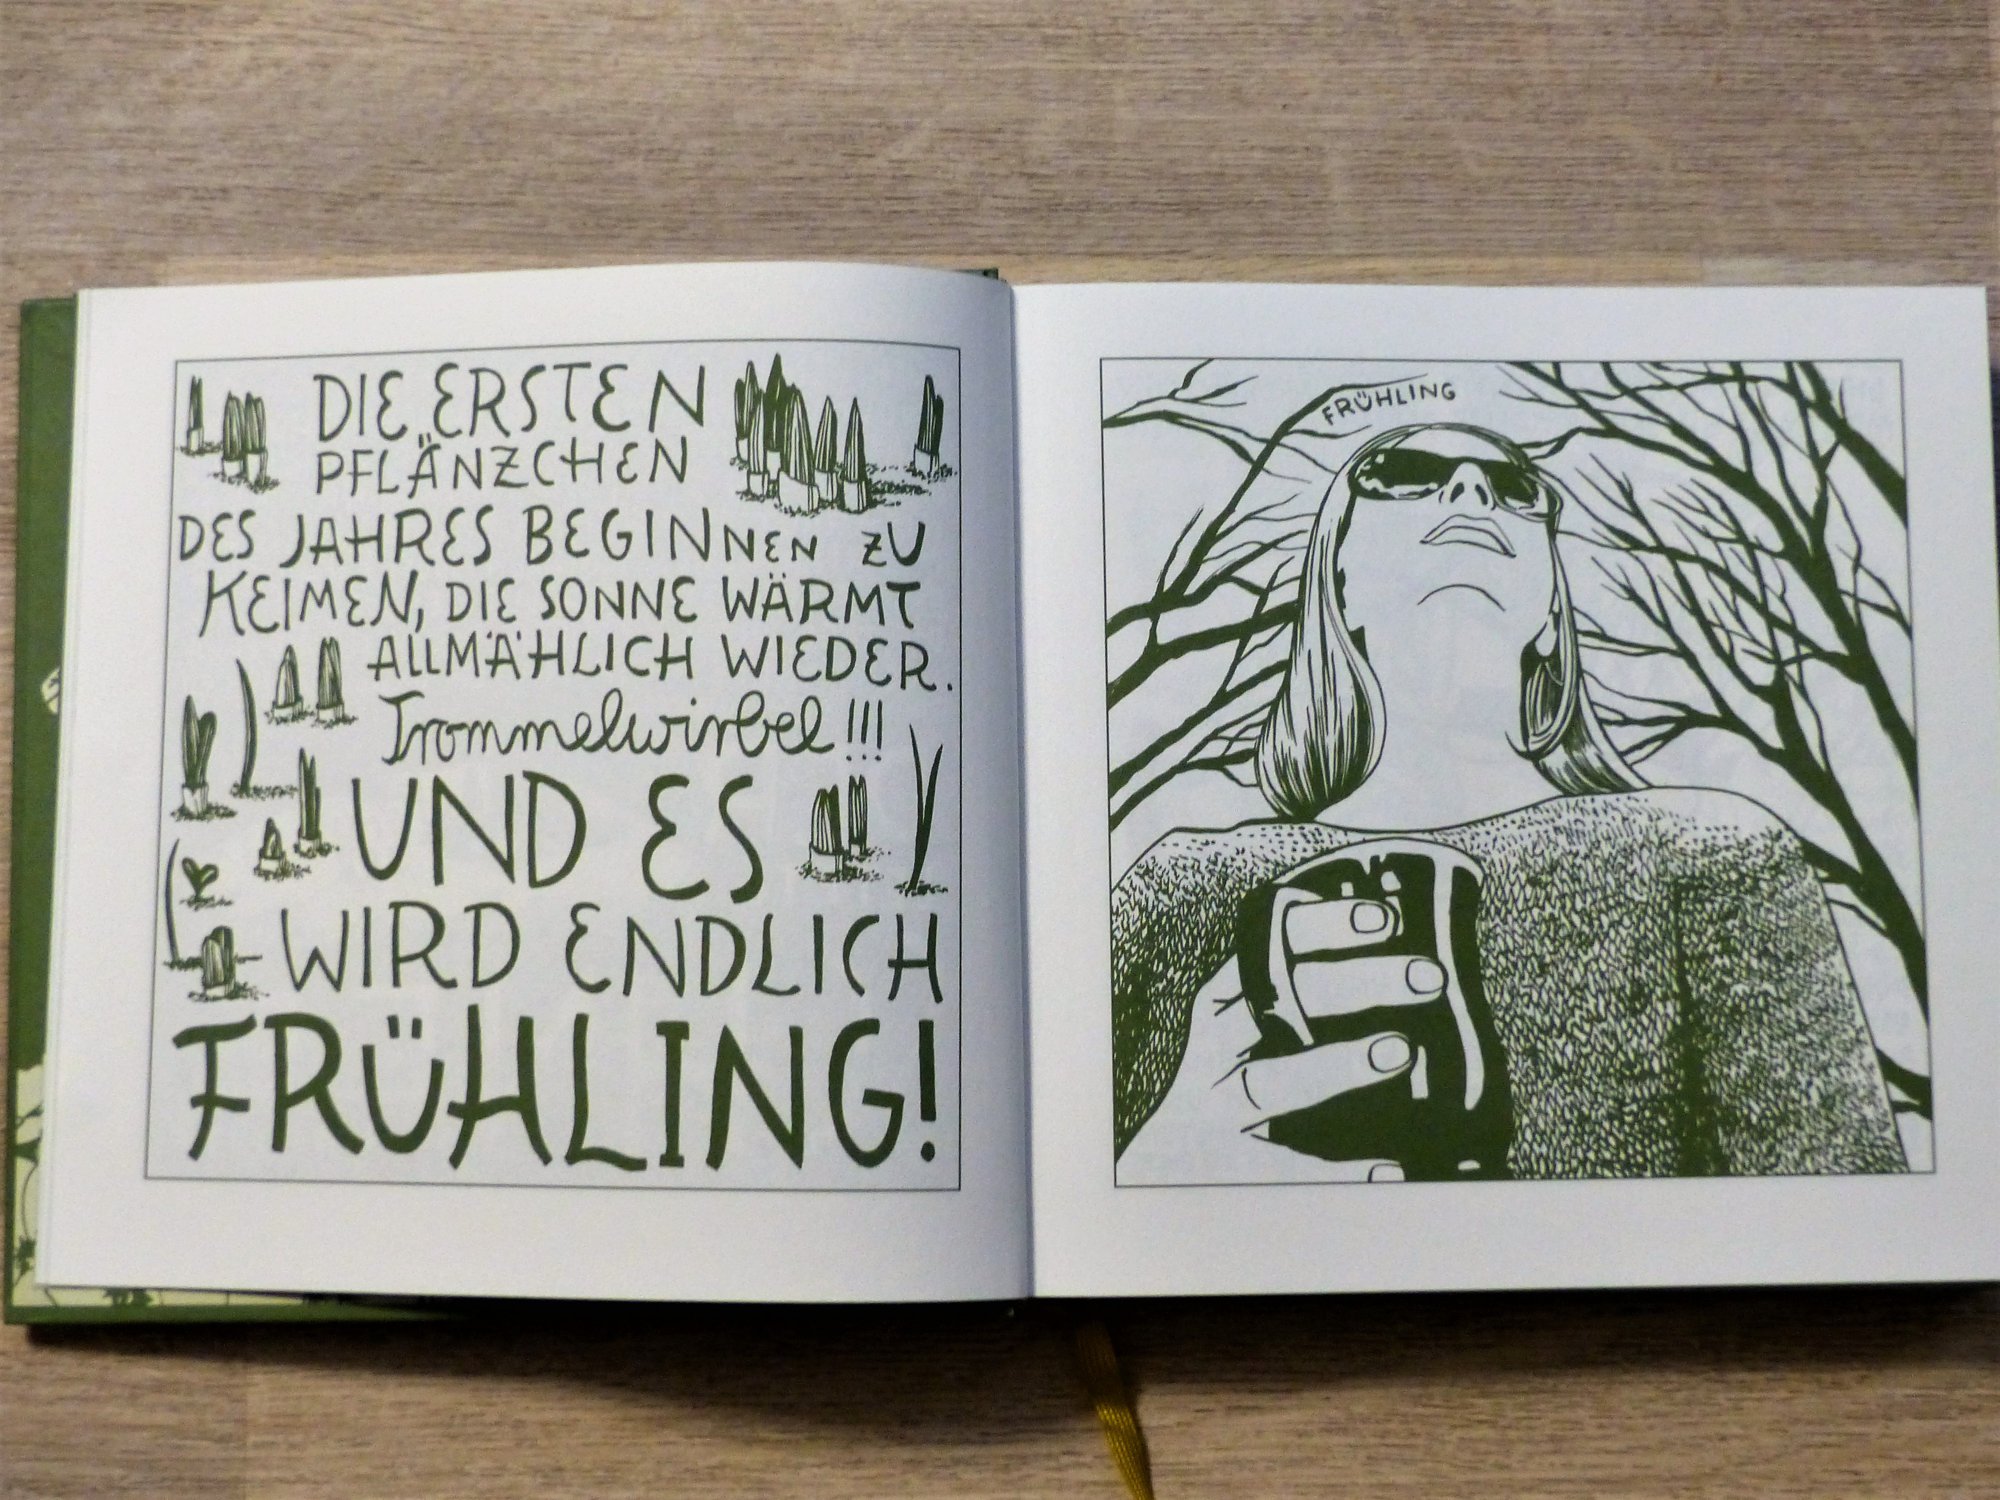 DIE ERSTEN
PFLÄNZCHEN
DES JAHRES BEGINNEN ZU
KEIMEN, DIE SONNE WÄRMT
ALLMÄHLICH WIEDER.
Trommelwirbel!!!
UND ES
WIRD ENDLICH
FRÜHLING!
FRÜHLING